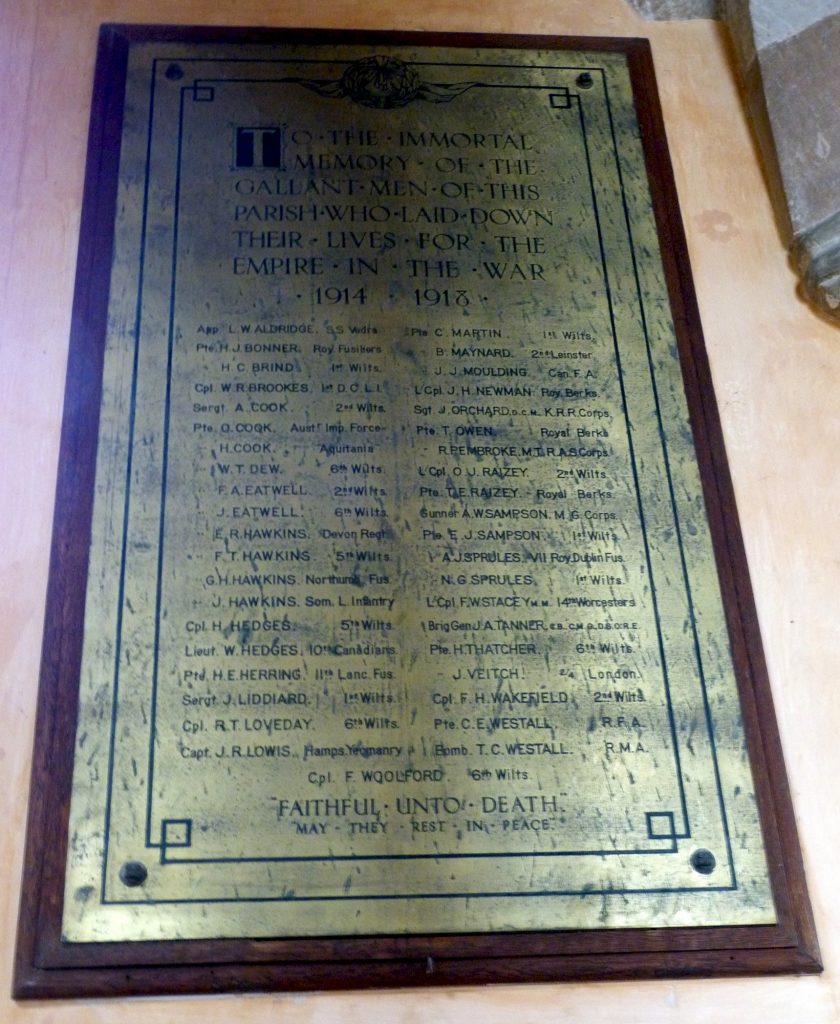 TO · THE · IMMORTAL
MEMORY · OF · THE
GALLANT · MEN · OF · THIS
PARISH · WHO · LAID · DOWN
THEIR · LIVES · FOR · THE
EMPIRE · IN · THE · WAR
· 1914 · 1918 ·
App. L.W. ALDRIDGE. S.S. Vedra
Pte. H.J. BONNER. Roy. Fusiliers
" H.C. BRIND. 1st Wilts.
Cpl. W.R. BROOKES. 1st D.C.L.I.
Sergt. A. COOK. 2nd Wilts.
Pte. O. COOK. Austn Imp. Force
" H. COOK. Aquitania
" W.T. DEW. 6th Wilts.
" F.A. EATWELL. 2nd Wilts.
" J. EATWELL. 6th Wilts.
" E.R. HAWKINS. Devon Regt.
" F.T. HAWKINS. 5th Wilts.
" G.H. HAWKINS. Northumb. Fus.
" J. HAWKINS. Som. L. Infantry
Cpl. H. HEDGES. 5th Wilts.
Lieut. W. HEDGES. 10th Canadians.
Pte. H.E. HERRING. 11th Lanc. Fus.
Sergt. J. LIDDIARD. 1st Wilts.
Cpl. R.T. LOVEDAY. 6th Wilts.
Capt. J.R. LOWIS. Hamps. Yeomanry
Pte. C. MARTIN. 1st Wilts.
" B. MAYNARD. 2nd Leinster.
" J.J. MOULDING. Can. F.A.
L/Cpl. J.H. NEWMAN. Roy. Berks.
Sgt. J. ORCHARD. D.C.M. K.R.R. Corps.
Pte. T. OWEN. Royal Berks
" R. PEMBROKE. M.T. R.A.S. Corps.
L/Cpl. O.J. RAIZEY. 2nd Wilts.
Pte. T.E. RAIZEY. Royal Berks.
Gunner A.W. SAMPSON. M.G. Corps.
Pte. E.J. SAMPSON. 1st Wilts.
" A.J. SPRULES. VII Roy. Dublin Fus.
" N.G. SPRULES. 1st Wilts.
L/Cpl. F.W. STACEY M.M. 14th Worcesters
Brig Gen. J.A. TANNER. C.B. C.M.G. D.S.O. R.E.
Pte. H. THATCHER. 6th Wilts.
" J. VEITCH. 2/4 London.
Cpl. F.H. WAKEFIELD. 2nd Wilts.
Pte. C.E. WESTALL. R.F.A.
Bomb. T.C. WESTALL. R.M.A.
Cpl. F. WOOLFORD. 6th Wilts.
"FAITHFUL · UNTO · DEATH."
"MAY · THEY · REST · IN · PEACE."